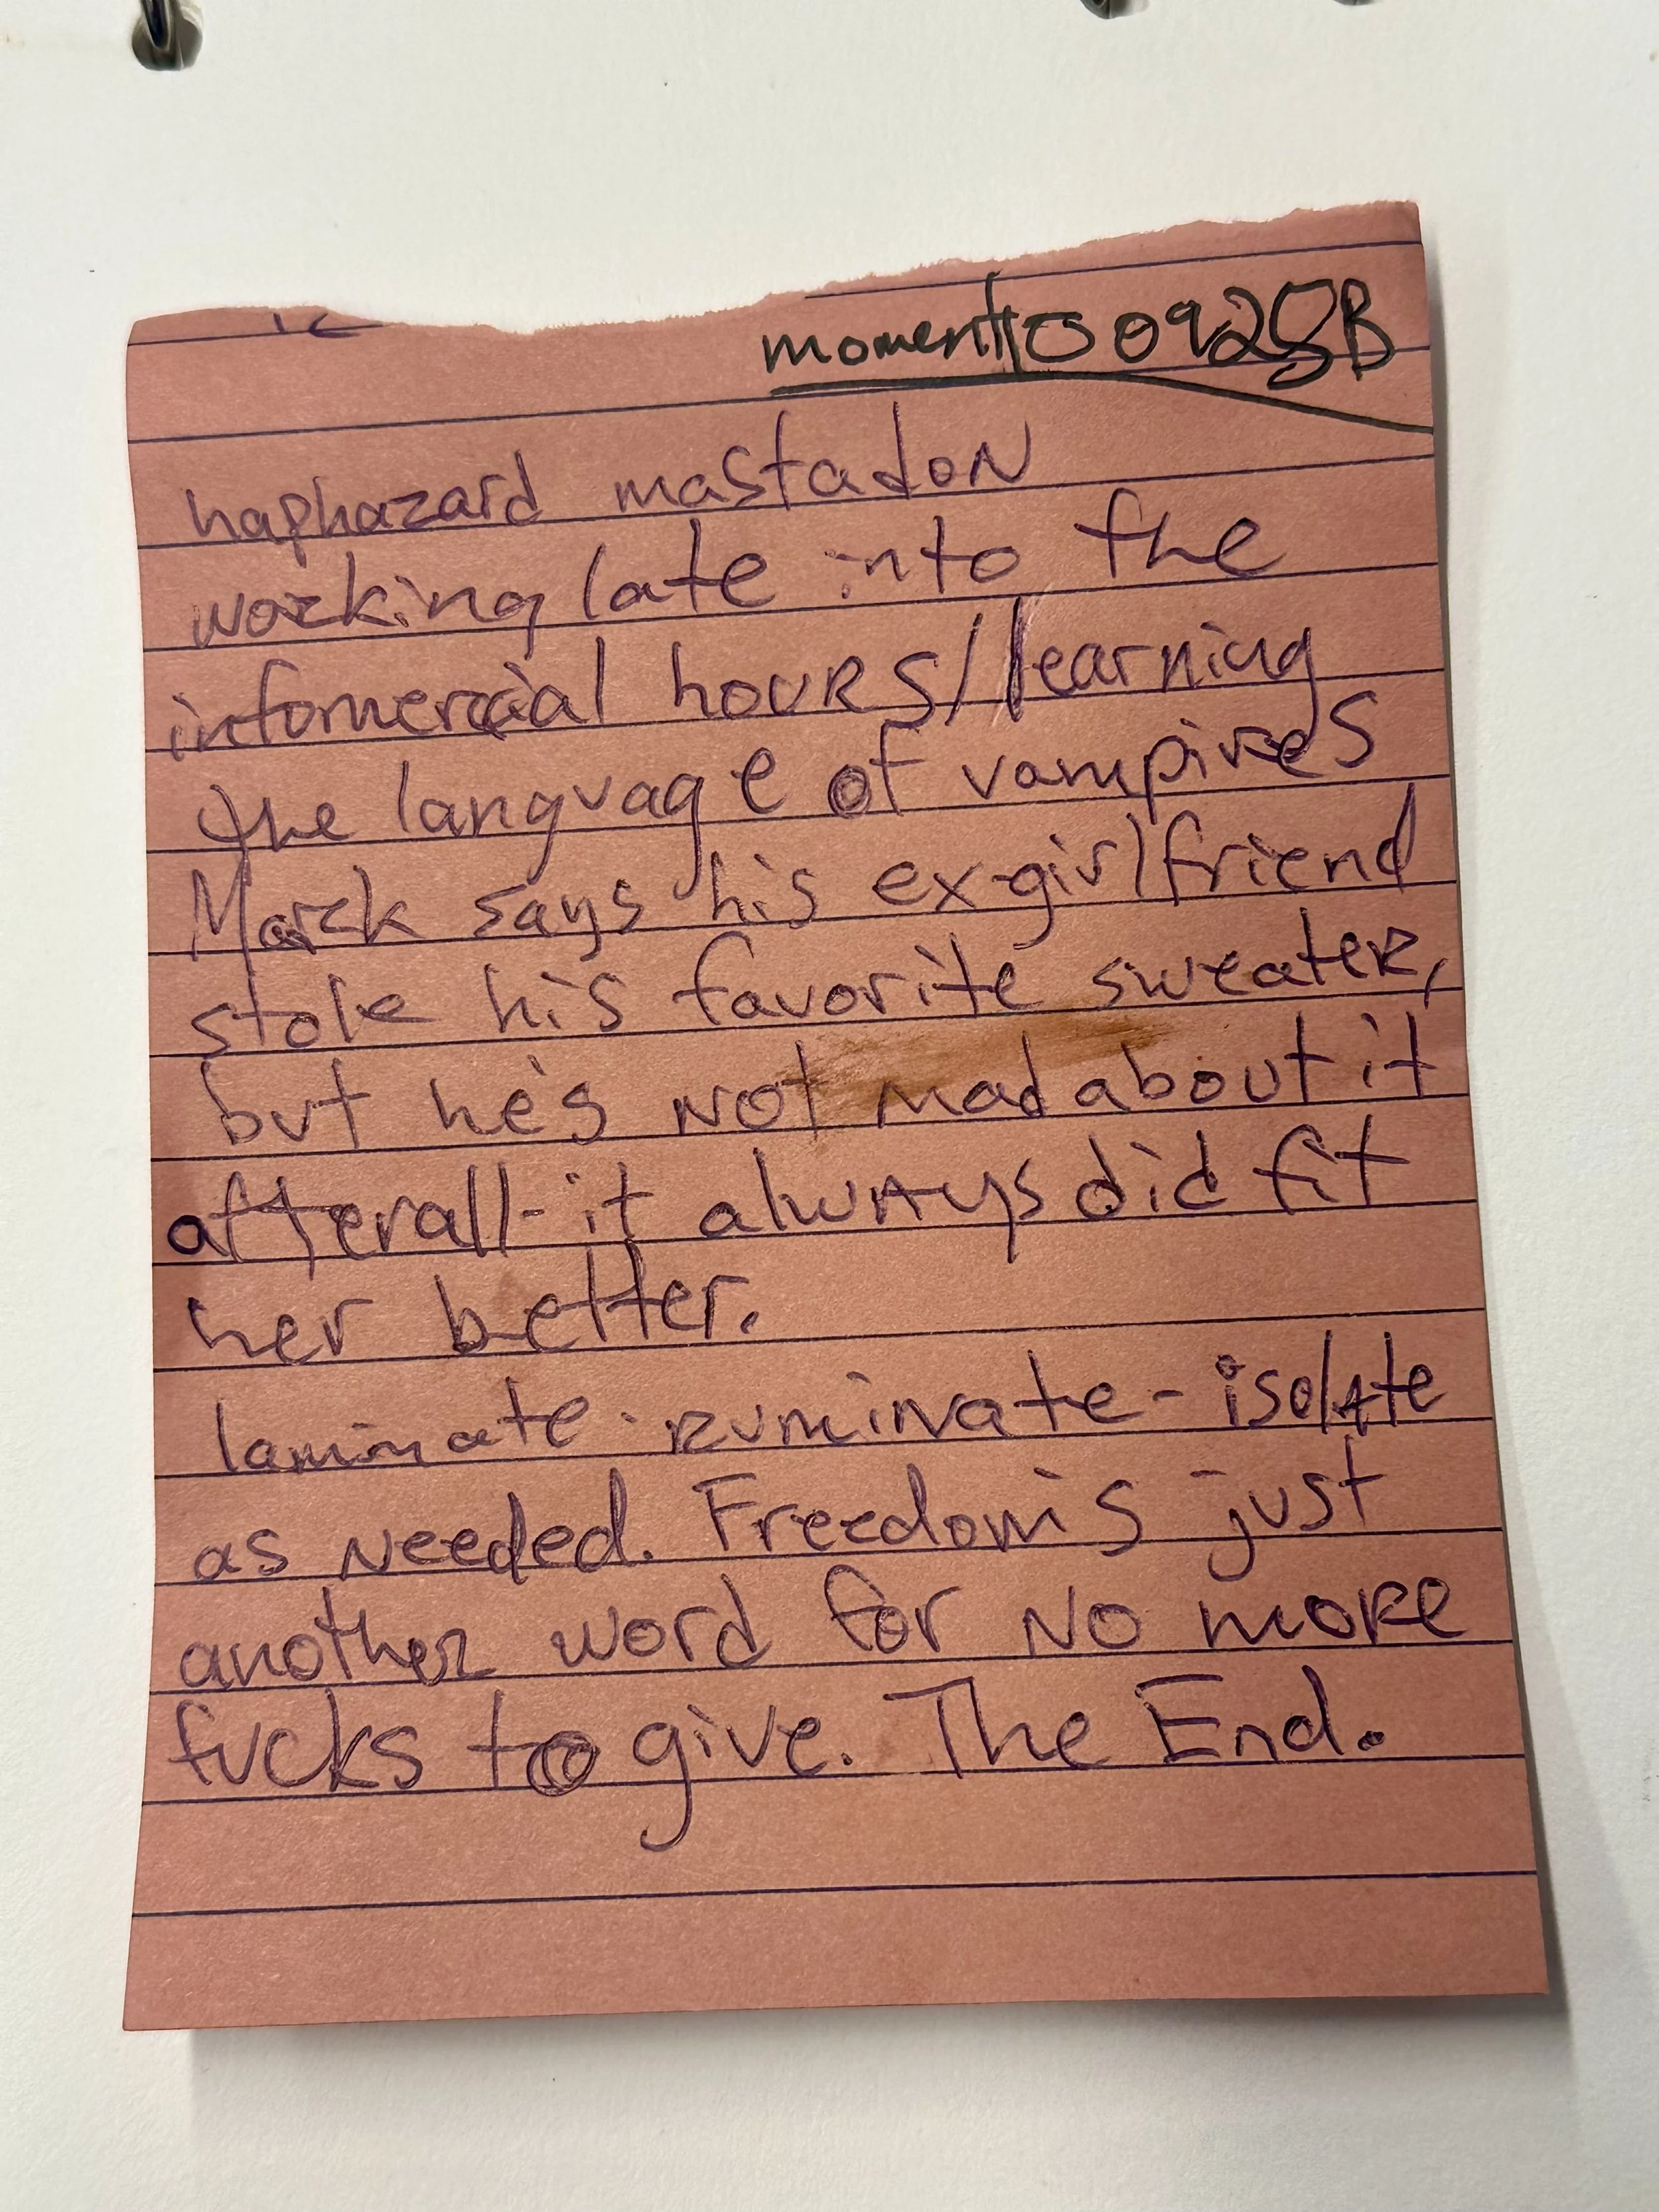 momento 0925B
haphazard mastadon
working late into the
infomercial hours/learning
the language of vampires
Mark says his ex-girlfriend
stole his favorite sweater,
but he's not mad about it
afterall - it always did fit
her better.
laminate - ruminate - isolate
as needed. Freedom's just
another word for no more
fucks to give. The End.